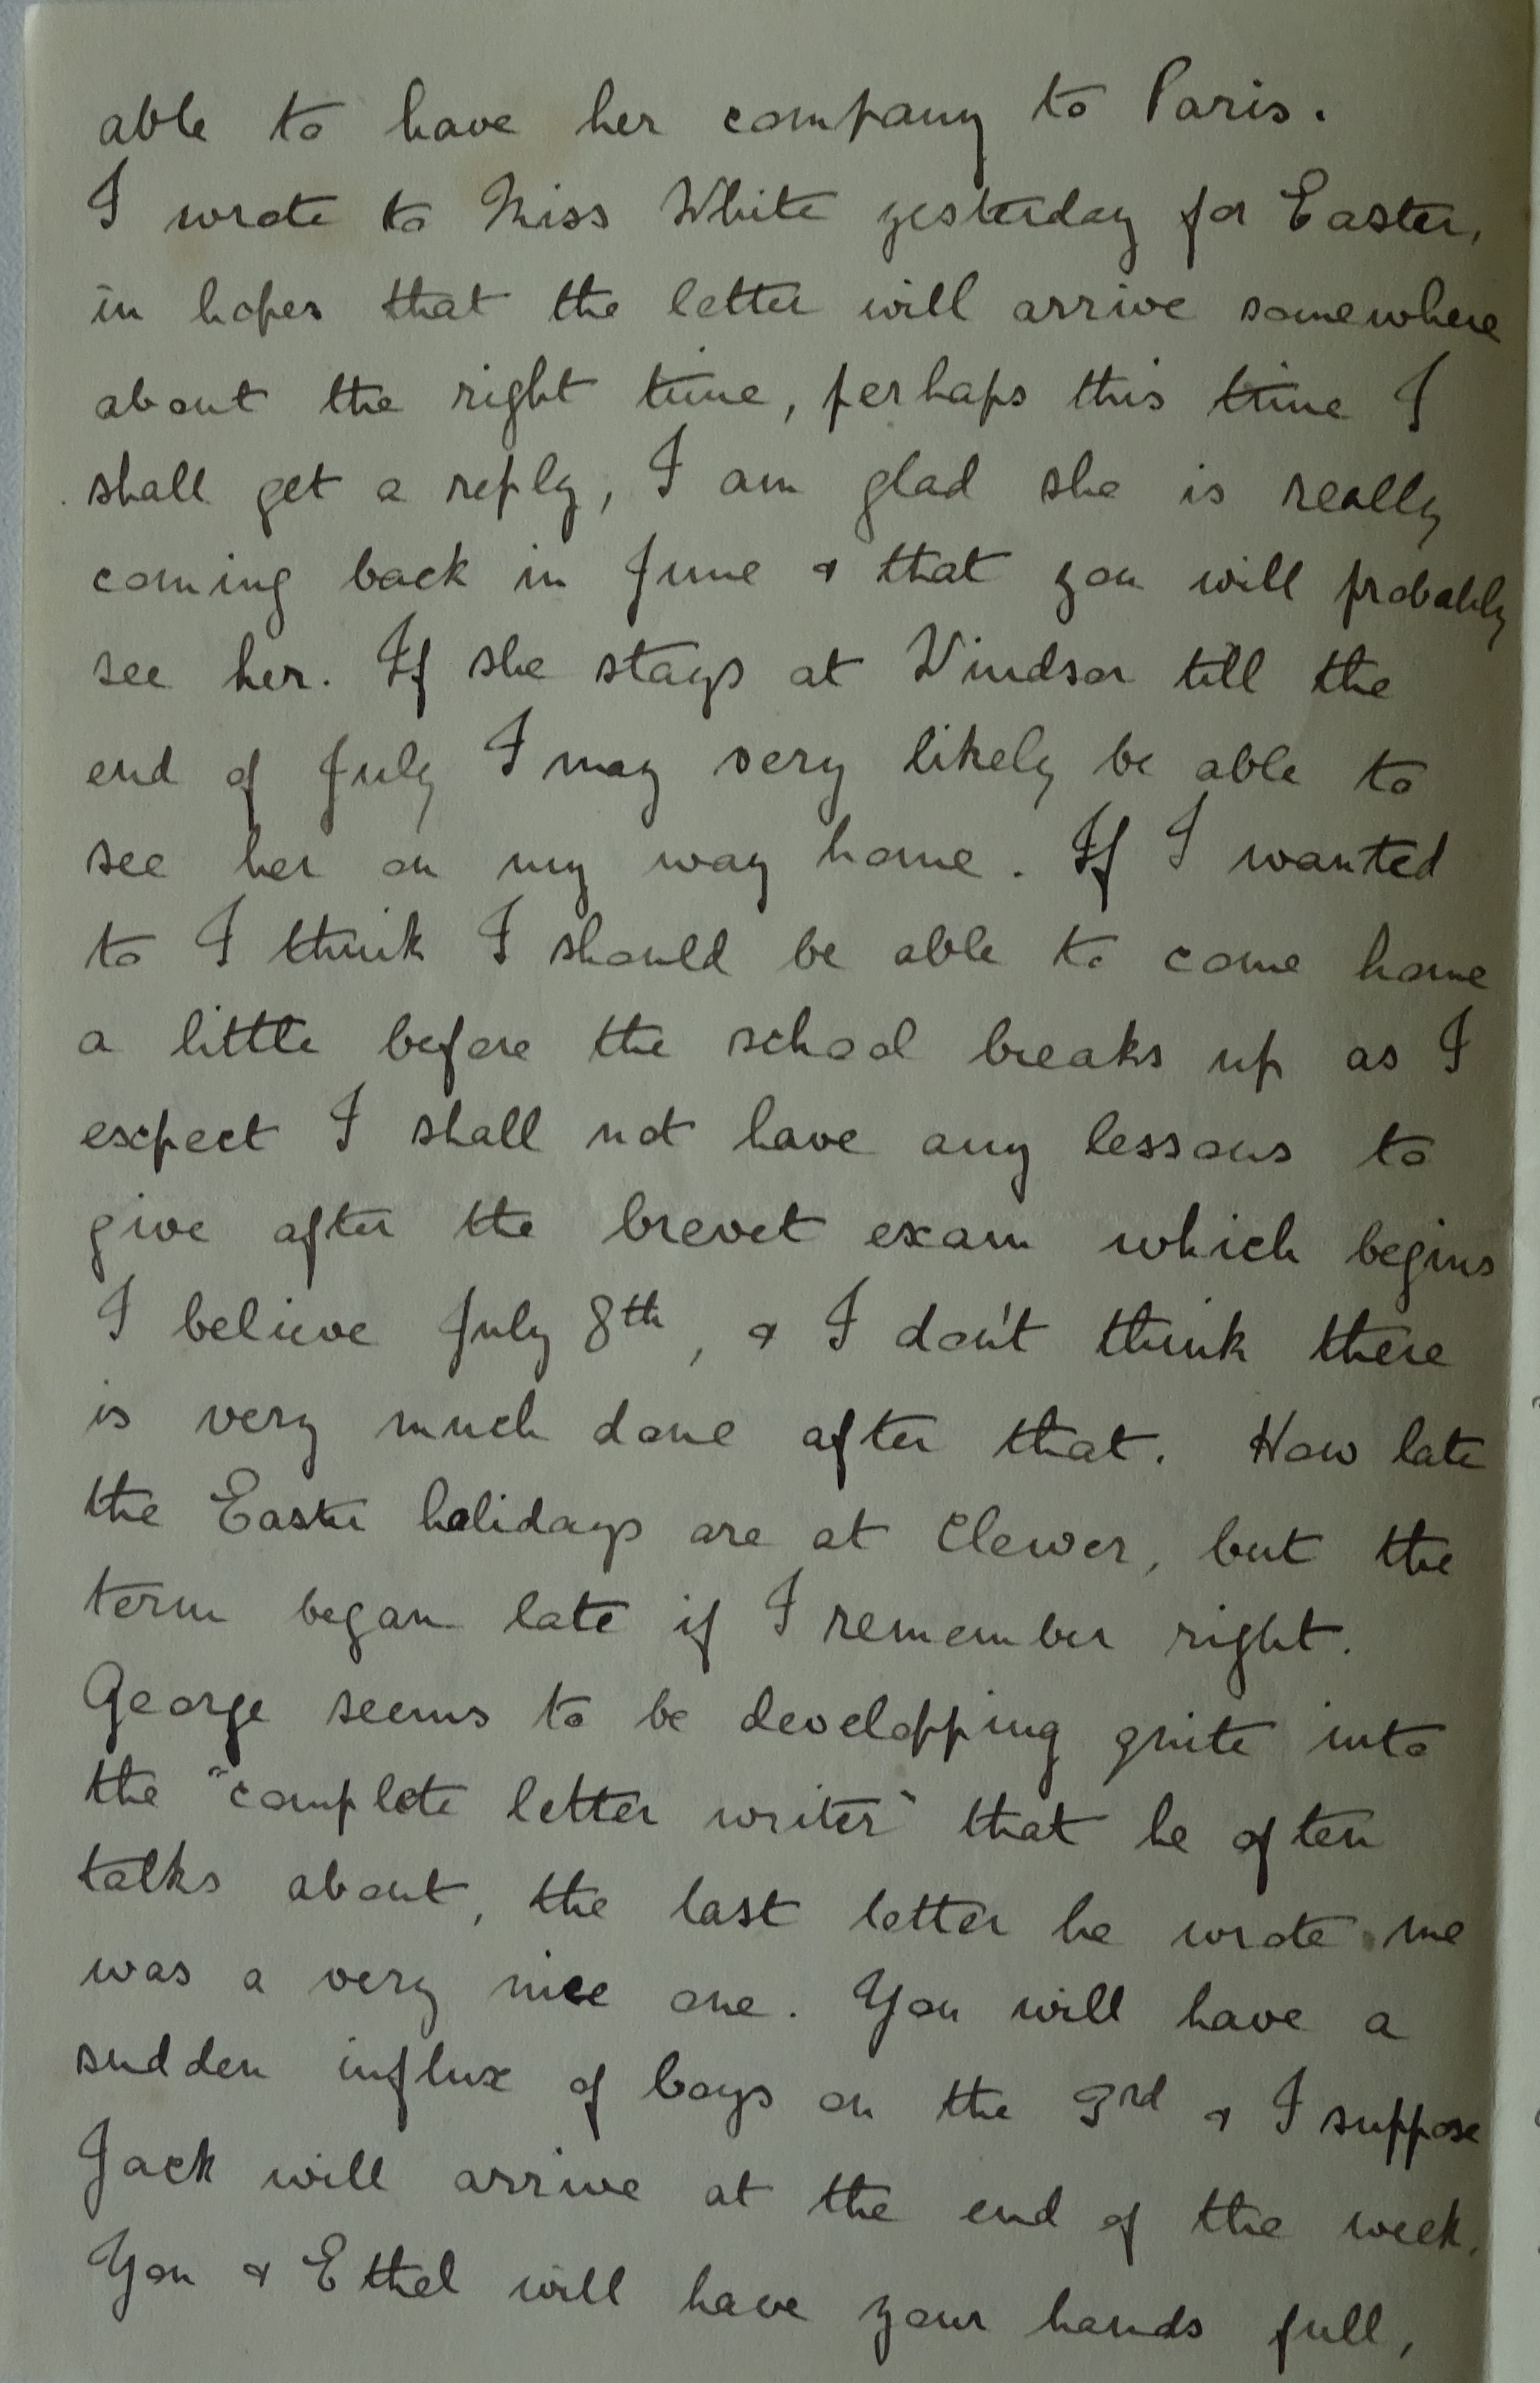 able to have her company to Paris.
I wrote to Miss White yesterday for Easter,
in hopes that the letter will arrive somewhere
about the right time, perhaps this time I
shall get a reply, I am glad she is really
coming back in June & that you will probably
see her. If she stays at Windsor till the
end of July I may very likely be able to
see her on my way home. If I wanted
to I think I should be able to come home
a little before the school breaks up as I
expect I shall not have any lessons to
give after the brevet exam which begins
I believe July 8th, & I don't think there
is very much done after that. How late
the Easter holidays are at Clewer, but the
term began late if I remember right.
George seems to be developping quite into
the "complete letter writer" that he often
talks about, the last letter he wrote me
was a very nice one. You will have a
sudden influx of boys on the 3rd & I suppose
Jack will arrive at the end of the week.
You & Ethel will have your hands full,